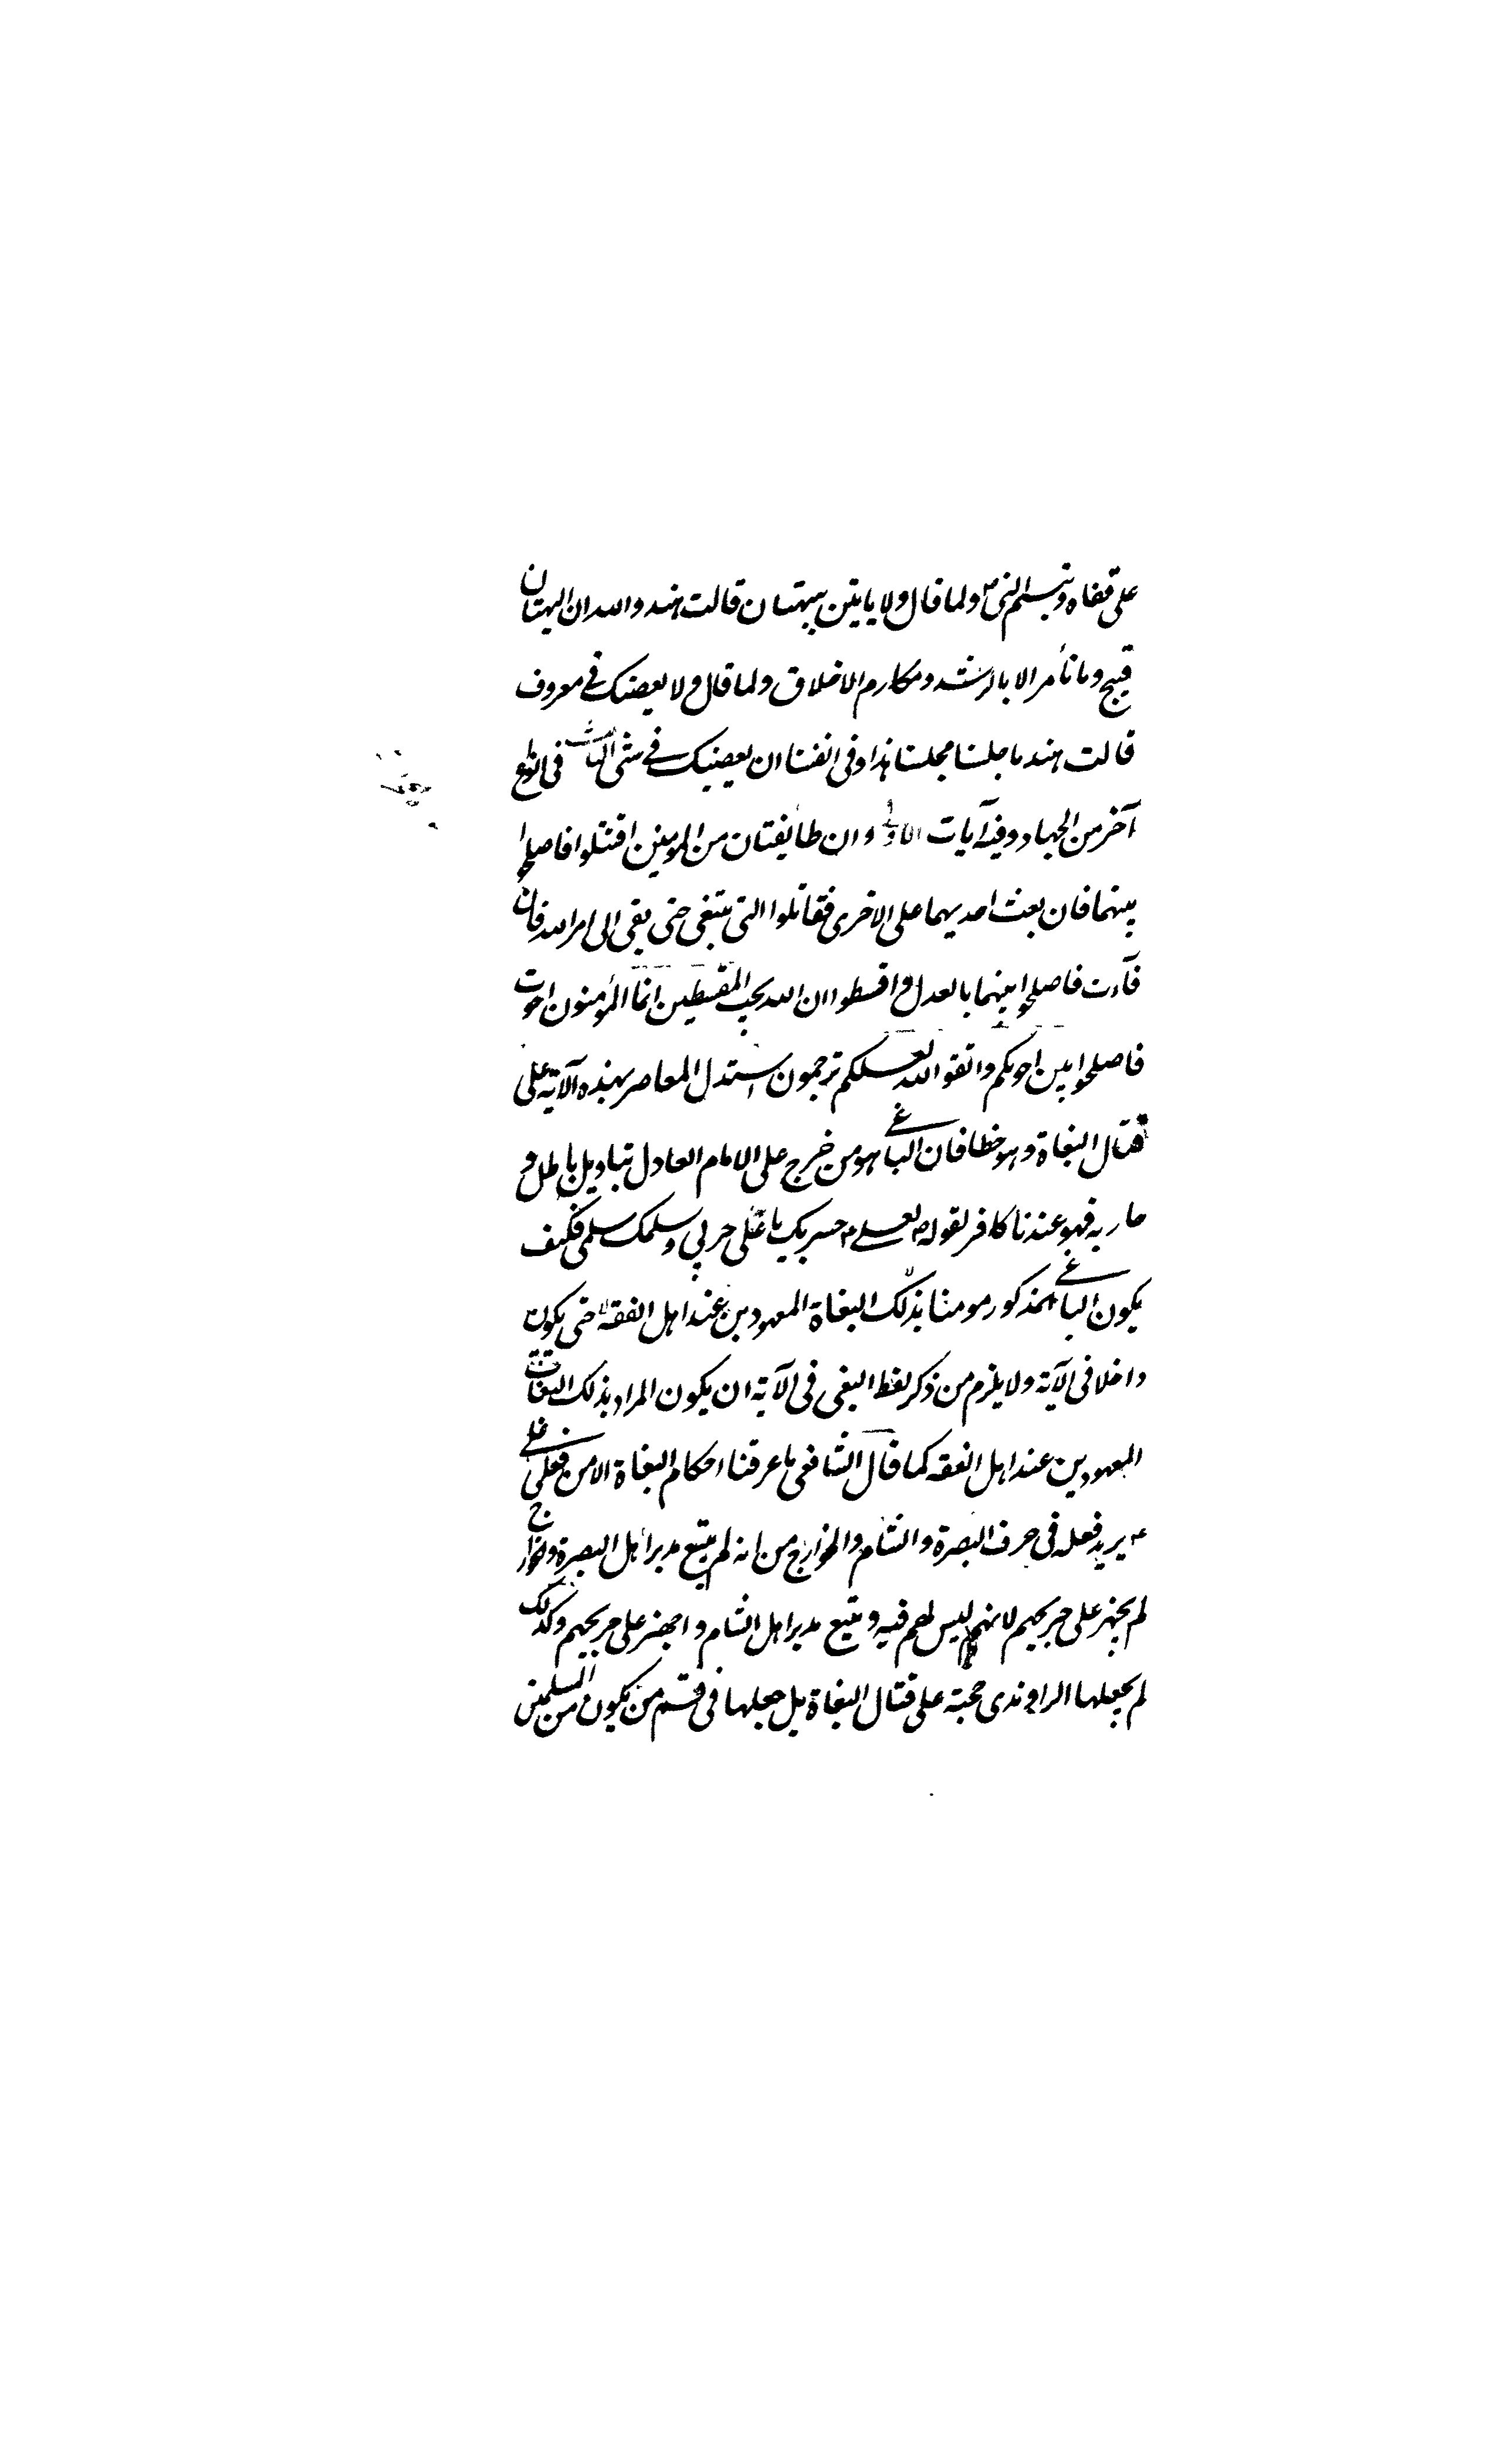 على قفاه وتبسم النبى ص ولما قال ولا ياتين ببهتان قالت هند والله ان البهتان
قبيح وما تأمر الا بالرشد ومكارم الاخلاق ولما قال ولا يعصينك في معروف
قالت هند ما جلسنا مجلسنا هذا وفى انفسنا ان نعصينك في شى الثالث فى انواع
آخر من الجهاد وفيه آيات الاولى وان طايفتان من المومنين اقتتلوا فاصلحوا
بينهما فان بغت احديهما على الاخرى فقاتلوا التى تبتغى حتى يفى الى امر الله فان
فآءت فاصلحوا بينهما بالعدل واقسطوا ان الله يحب المقسطين انما المؤمنون اخوة
فاصلحوا بين اخويكم واتقوا الله لعلكم ترحمون استدل المعاصر بهذه الآية على
قتال البغاة وهو خطا فان الباغي هو من خرج على الامام العادل بتاويل باطل و
حاربه فهو عندنا كافر لقوله ص لعلى ع حربك يا على حربي وسلمك سلمى فكيف
يكون الباغي المذكور مومنا بذلك البغاة المعهودين عند اهل الفقه حتى يكون
داخلا فى الآية ولا يلزم من ذكر لفظ البغى فى الآية ان يكون المراد بذلك البغات
المعهودين عند اهل الفقه كما قال الشافعى ما عرفنا احكام البغاة الا من فعل على
ع يريد فعله فى حرب البصرة والشام والخوارج من انه لم يتبع مدبر اهل البصرة والخوارج
لم يجهز على جريحهم لانهم ليس لهم فيه وتبع مدبر اهل الشام واجهز على جريحهم وكذلك
لم يجعلها الراوندى حجة على قتال البغاة بل جعلها فى قسم من يكون من المسلمين